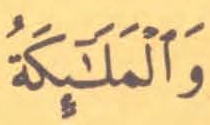 وَٱلْمَلَـٰٓئِكَةُ